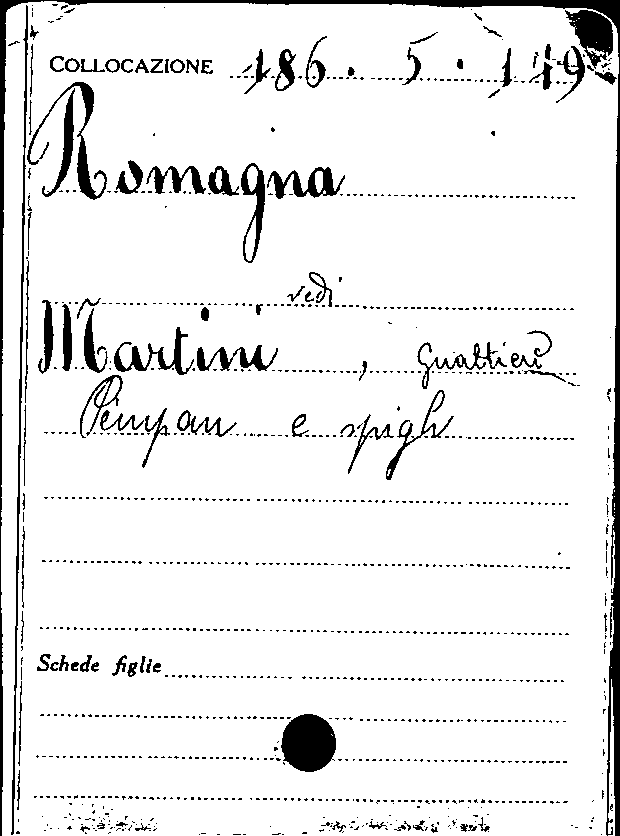 COLLOCAZIONE 186. 5. 119
Romagna
vedi
Martini, Gualtieri
e spighi
Schede figlie